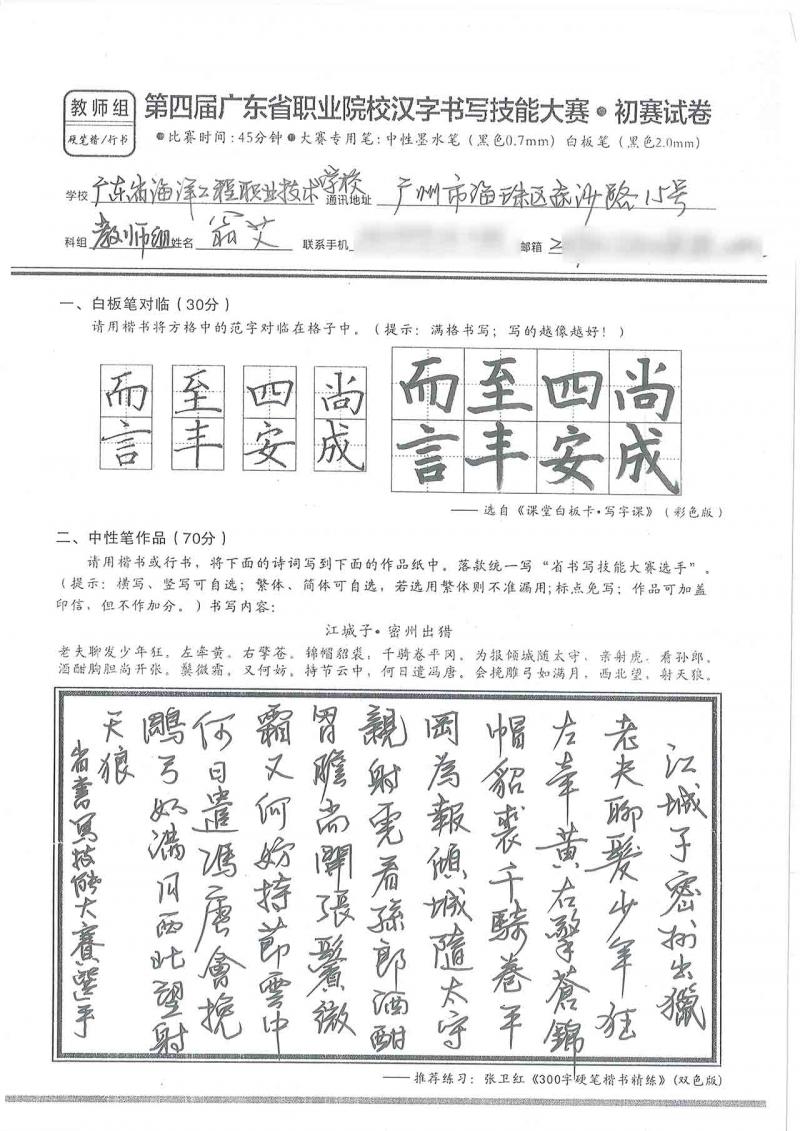 教师组
硬笔楷/行书
第四届广东省职业院校汉字书写技能大赛•初赛试卷
●比赛时间:45分钟●大赛专用笔:中性墨水笔(黑色0.7mm)白板笔(黑色2.0mm)
学校 广东省海洋工程职业技术学校 通讯地址 广州市海珠区南沙路15号
科组 教师组 姓名 翁艾 联系手机 邮箱 2
一、白板笔对临(30分)
请用楷书将方格中的范字对临在格子中。(提示:满格书写;写的越像越好!)
而 至 四 尚 而 至 四 尚
言 丰 安 成 言 丰 安 成
——选自《课堂白板卡·写字课》(彩色版)
二、中性笔作品(70分)
请用楷书或行书,将下面的诗词写到下面的作品纸中。落款统一写“省书写技能大赛选手”。
(提示:横写、竖写可自选;繁体、简体可自选,若选用繁体则不准漏用;标点免写;作品可加盖
印信,但不作加分。)书写内容:
江城子·密州出猎
老夫聊发少年狂。左牵黄。右擎苍。锦帽貂裘,千骑卷平冈。为报倾城随太守,亲射虎,看孙郎。
酒酣胸胆尚开张。鬓微霜。又何妨。持节云中,何日遣冯唐。会挽雕弓如满月,西北望,射天狼。
江城子密州出獵
老夫聊髮少年狂
左牽黄右擎蒼錦
帽貂裘千騎卷平
岡為報傾城隨太守
親射虎看孫郎酒酣
胷膽尚開張鬢微
霜又何妨持節雲中
何日遣馮唐會挽
鵰弓如滿月西北望射
天狼
省書寫技能大賽選手
——推荐练习:张卫红《300字硬笔楷书精练》(双色版)